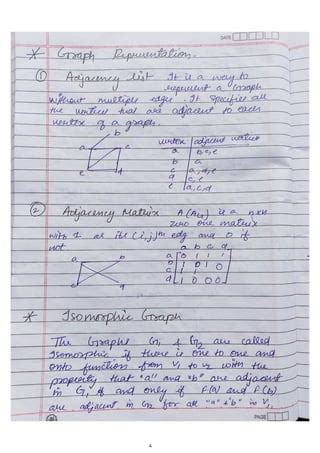 DATE
* Graph Representation.
① Adjacency list It is a way to
represent a Graph
without multiple edge. It specifies all
the vertices that are adjacent to each
vertex of a graph.
b
a c
e d
vertex | adjacent vertices
a b, c, e
b a
c a, d, e
d c, e
e a, c, d
② Adjacency Matrix A (AG) is a nxn
zero one matrix
with 1 as its (i,j)th edg and 0 if
not
a b
c d
a b c d
a 0 1 1 1
b 1 0 1 0
c 1 1 0 0
d 1 0 0 0
* Isomorphic Graph
The Graphs G1 & G2 are called
Isomorphic if there is one to one and
onto function from V1 to V2 with the
property that "a" and "b" are adjacent
in G1 if and only if f(a) and f(b)
are adjacent in G2 for all "a" & "b" in V1.
PAGE
4